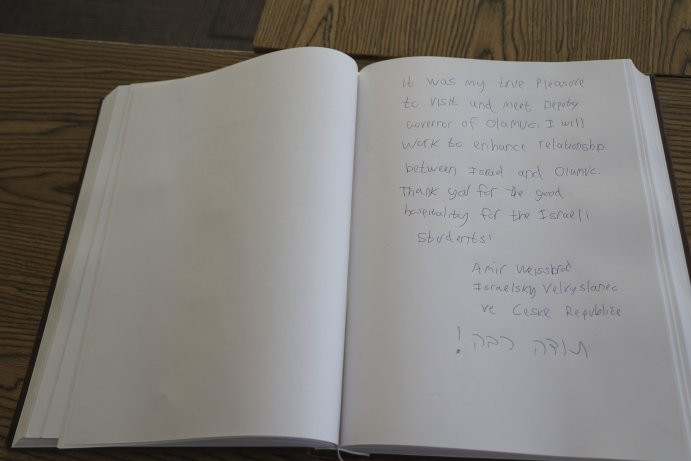 It was my true Pleasure
to visit and meet Deputy
Governor of Olomuc. I will
work to enhance relationship
between Israel and Olomuc.
Thank you for the good
hospitality for the Israeli
Students!
Amir Weissbrod
Israelsky Velvyslanec
ve Ceske Republice
תודה רבה!